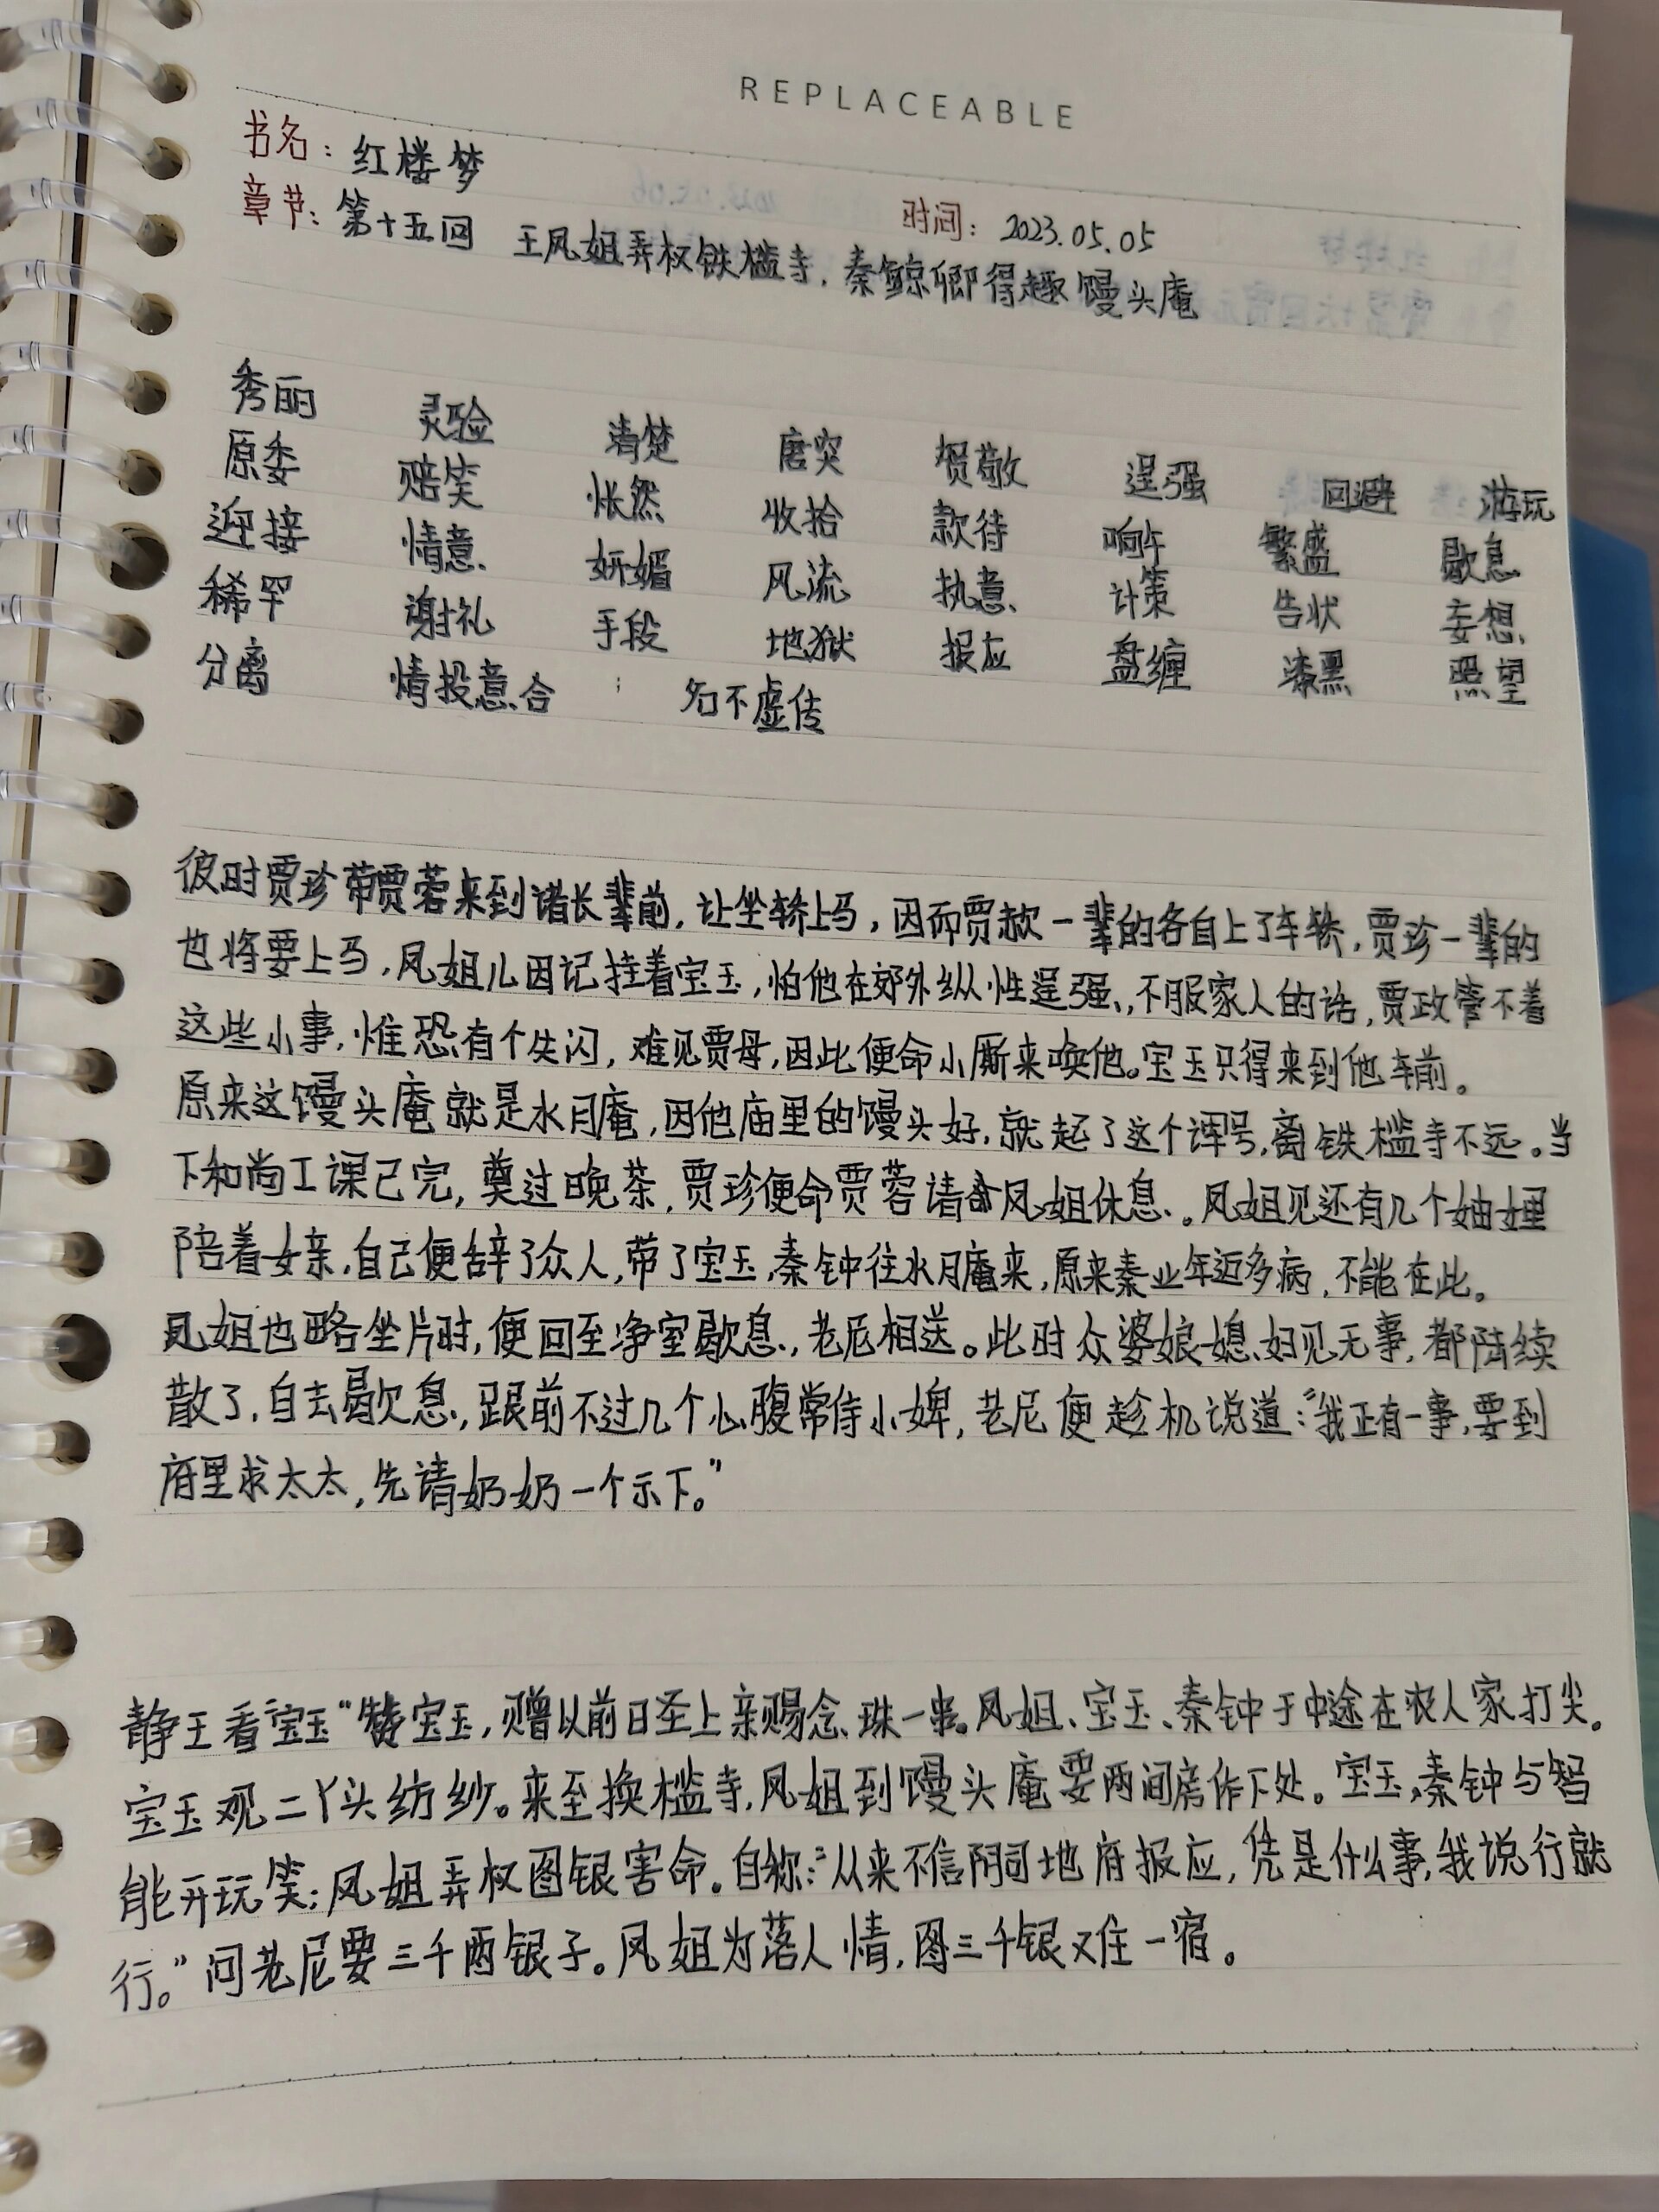 REPLACEABLE
书名：红楼梦
章节：第十五回 王凤姐弄权铁槛寺，秦鲸卿得趣馒头庵
时间：2023.05.05
秀丽 灵验 清楚 唐突 贺敬 逞强 回避 游玩
原委 赔笑 怅然 收拾 款待 晌午 繁盛 歇息
迎接 情意 妍媚 风流 执意 计策 告状 妄想
稀罕 谢礼 手段 地狱 报应 盘缠 漆黑 照望
分离 情投意合 ； 名不虚传
彼时贾珍带贾蓉来到诸长辈前，让坐轿上马，因而贾赦一辈的各自上了车轿，贾珍一辈的
也将要上马，凤姐儿因记挂着宝玉，怕他在郊外纵性逞强，不服家人的话，贾政管不着
这些小事，惟恐有个失闪，难见贾母，因此便命小厮来唤他。宝玉只得来到他车前。
原来这馒头庵就是水月庵，因他庙里的馒头好，就起了这个诨号，离铁槛寺不远。当
下和尚工课已完，奠过晚茶，贾珍便命贾蓉请凤姐休息。凤姐见还有几个妯娌
陪着女亲，自己便辞了众人，带了宝玉，秦钟往水月庵来，原来秦业年迈多病，不能在此。
凤姐也略坐片时，便回至净室歇息，老尼相送。此时众婆娘媳妇见无事，都陆续
散了，自去歇息，跟前不过几个心腹常侍小婢，老尼便趁机说道：“我正有一事，要到
府里求太太，先请奶奶一个示下。”
静王看“宝玉”赞宝玉，赠以前日圣上亲赐念珠一串。凤姐、宝玉、秦钟于中途在农人家打尖。
宝玉观二丫头纺纱。来至换槛寺，凤姐到馒头庵要两间房作下处。宝玉，秦钟与智
能开玩笑；凤姐弄权图银害命。自称：“从来不信阴司地府报应，凭是什么事，我说行就
行。”问老尼要三千两银子。凤姐为落人情，图三千银又住一宿。